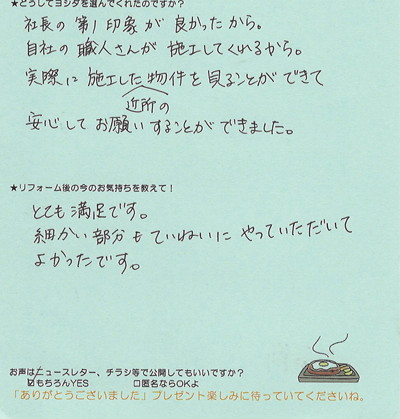 ★どうしてヨシダを選んでくれたのですか？
社長の第1印象が良かったから。
自社の職人さんが施工してくれるから。
実際に施工した物件を見ることができて
近所の
安心してお願いすることができました。
★リフォーム後の今のお気持ちを教えて！
とても満足です。
細かい部分もていねいにやっていただいて
よかったです。
お声はニュースレター、チラシ等で公開してもいいですか？
☑もちろんYES　□匿名ならOKよ
「ありがとうございました」プレゼント楽しみに待っていてくださいね。